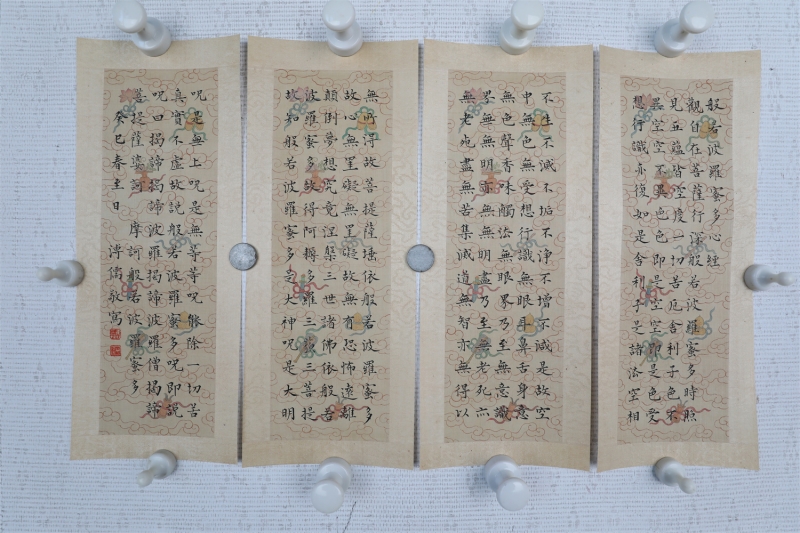 般若波羅蜜多心經
觀自在菩薩行深般若波羅蜜多時照
見五蘊皆空度一切苦厄舍利子色不
異空空不異色色即是空空即是色受
想行識亦復如是舍利子是諸法空相
不生不滅不垢不淨不增不減是故空
中無色無受想行識無眼耳鼻舌身意
無色聲香味觸法無眼界乃至無意識
界無無明亦無無明盡乃至無老死亦
無老死盡無苦集滅道無智亦無得以
無所得故菩提薩埵依般若波羅蜜多
故心無罣礙無罣礙故無有恐怖遠離
顛倒夢想究竟涅槃三世諸佛依般若
波羅蜜多故得阿耨多羅三藐三菩提
故知般若波羅蜜多是大神呪是大明
呪是無上呪是無等等呪能除一切苦
真實不虛故說般若波羅蜜多呪即說
呪曰揭諦揭諦波羅揭諦波羅僧揭諦
菩提薩婆訶 摩訶般若波羅蜜多
癸巳春至日 溥儒敬寫